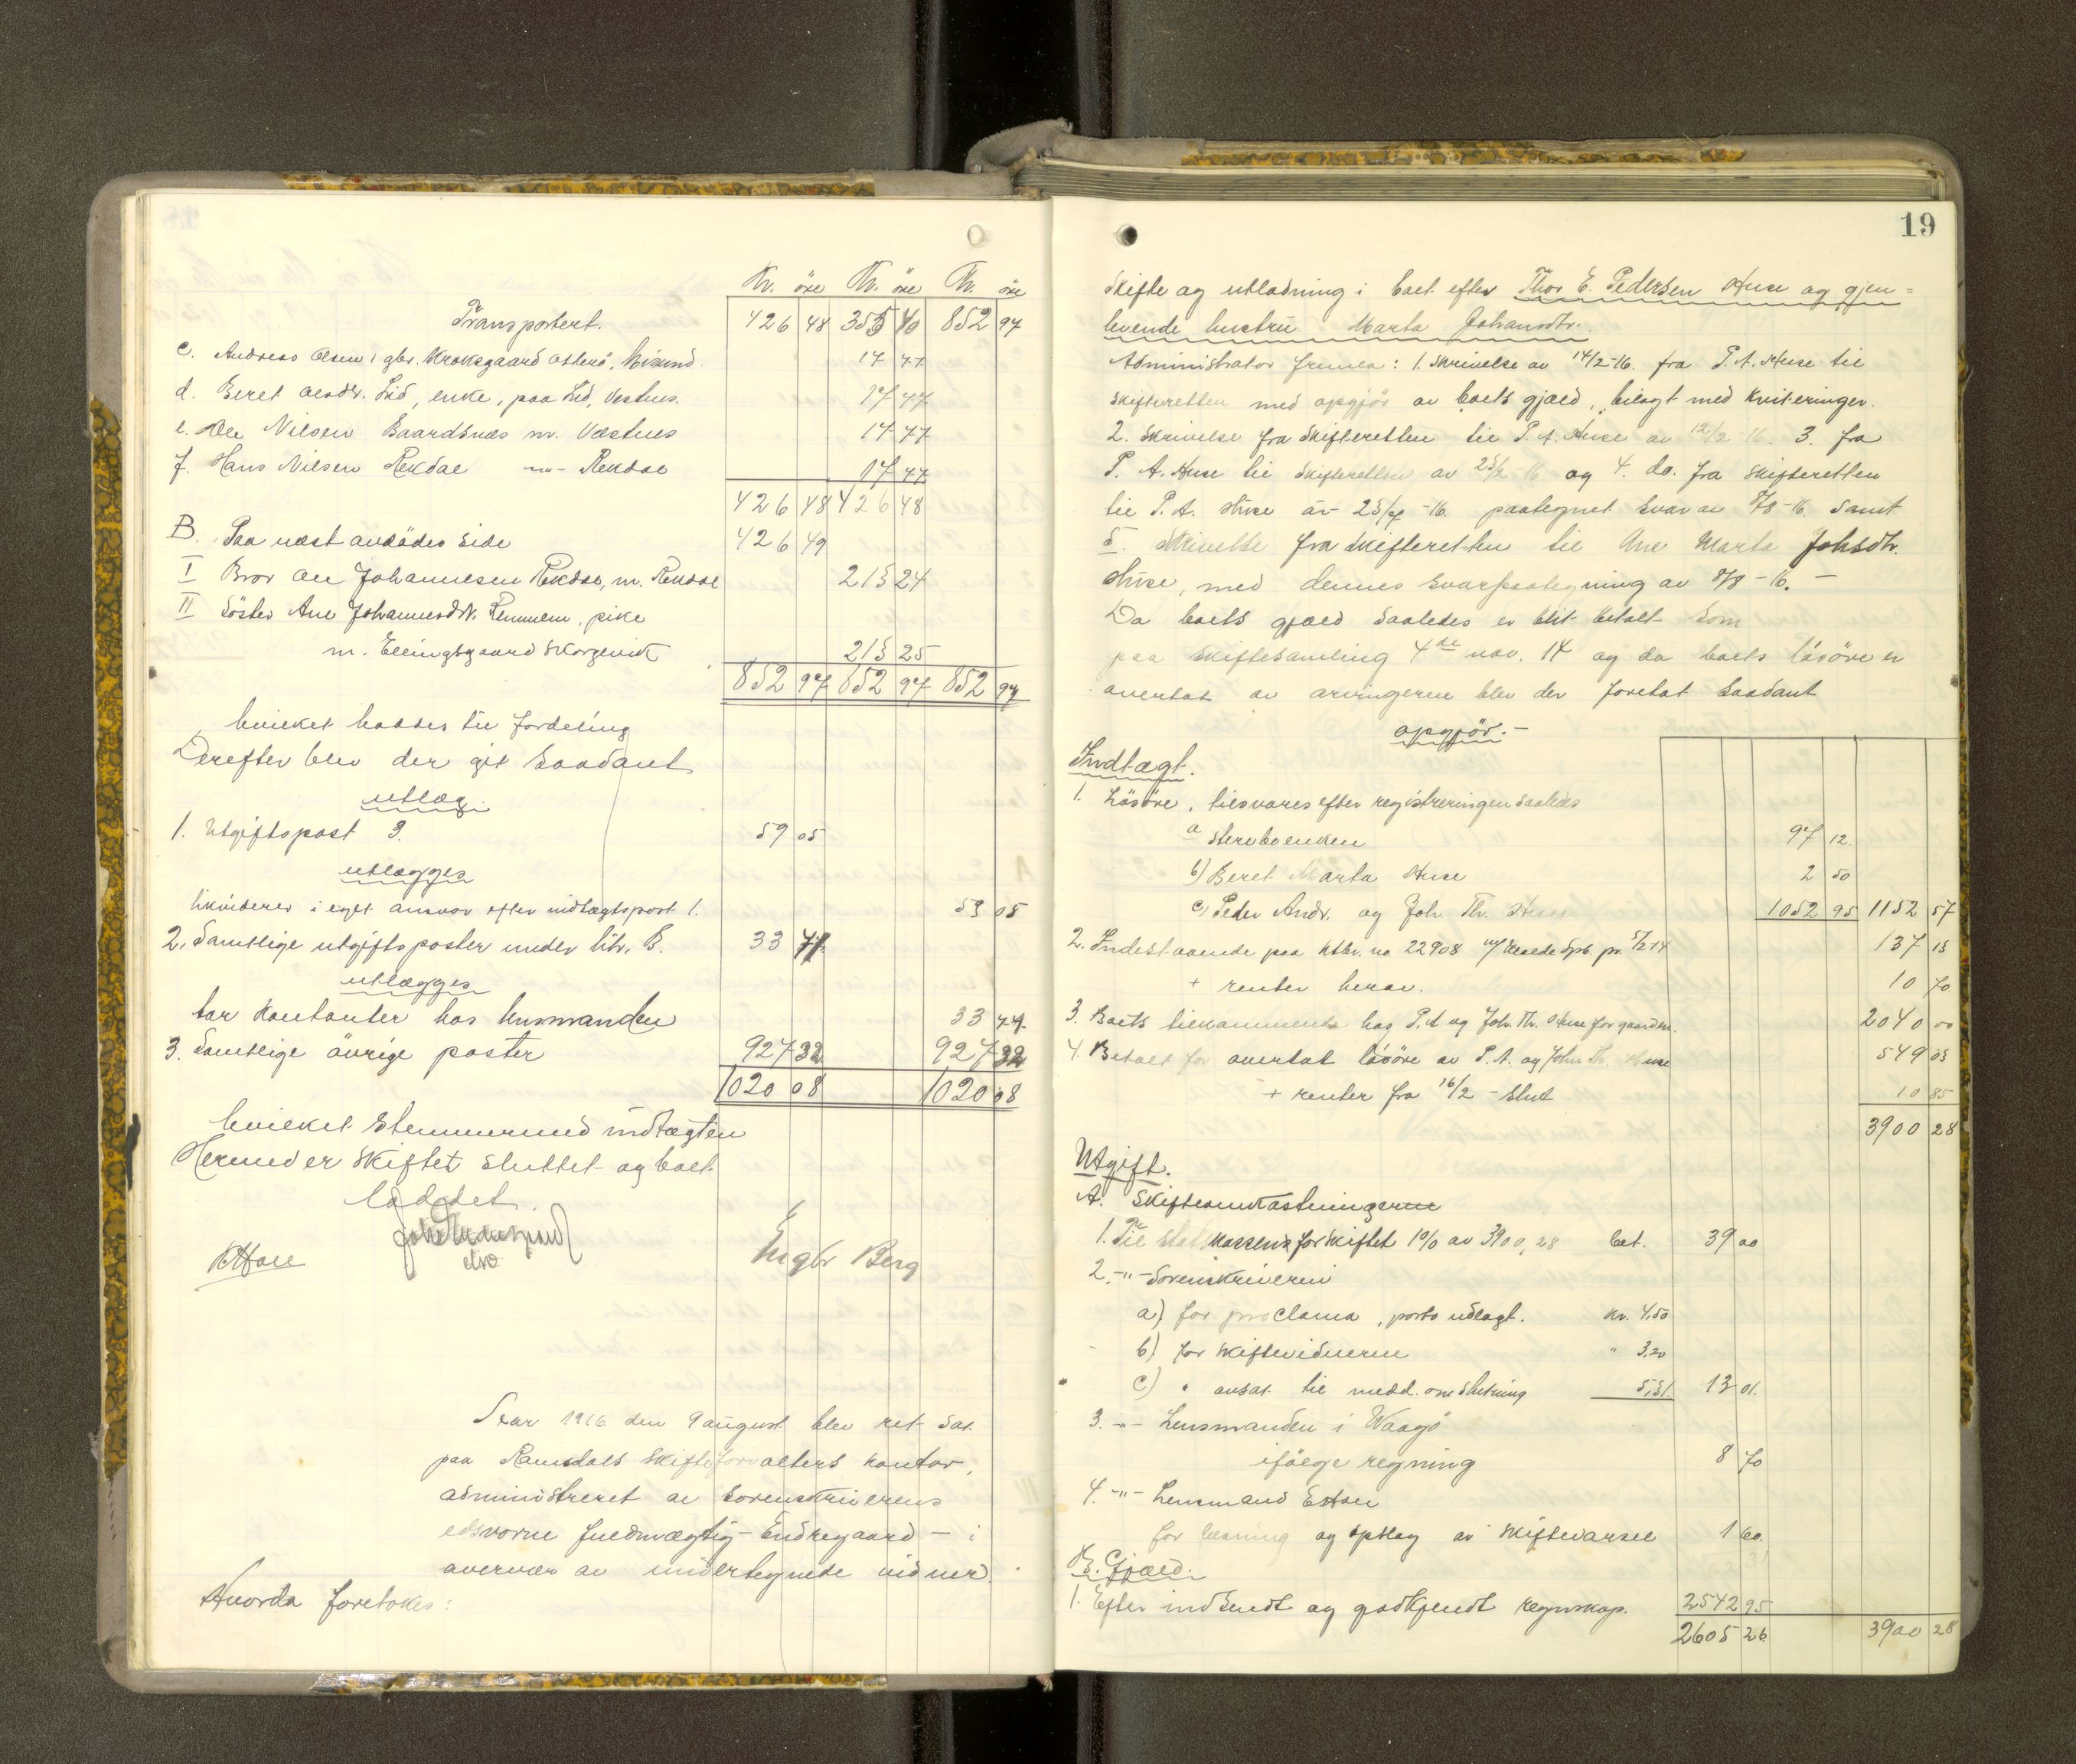 Kr. öre Kr. öre Kr. öre
Transportert. 426 48 355 40 852 97
c. Andreas Olsen, gbr. Kroksgaard Otterö, Misund. 17 77
d. Beret Olsdtr. Lid, enke, paa Lid, Vestnes. 17 77
e. Ole Nilsen Baardsnes m. Vestnes 17 77
f. Hans Nilsen Rekdal -"- Rekdal 17 77
426 48 426 48
B. Paa næst avdödes side 426 49
I Bror Ole Johannesen Rekdal, m. Rekdal 213 24
II Söster Ane Johannesdtr. Remmem, pike
m. Ellingsgaard Skorgevik 213 25
852 97 852 97 852 97
hvilket haddes til fordeling
Derefter blev der git saadant
utlæg.
1. Utgiftspost 3. 59 05
utlægges
likvideres i eget ansvar efter indtægtspost 1. 59 05
2. Samtlige utgiftsposter under litr. B. 33 71
utlægges
tar kontanter hos lensmanden 33 71
3. Samtlige övrige poster 927 32 927 32
1020 08 1020 08
hvilket stemmer med indtægten
Hermed er skiftet sluttet og boet
laddet.
Engbr Berg
Aar 1916 den 9 august blev ret sat
paa Romsdals skifteforvalters kontor,
administreret av sorenskriverens
edsvorne fuldmægtig - Endregaard - i
overvær av undertegnede vidner.
Hvorda foretokes:
19
Skifte og utlodning i boet efter Thor E. Pedersen Huse og gjen=
levende hustru Marta Johansdtr.
Administrator fremla: 1. Skrivelse av 14/2-16. fra P. A. Huse til
skifteretten med opgjör av boets gjæld, bilagt med kvitteringer.
2. Skrivelse fra skifteretten til P. A. Huse av 12/2-16. 3. fra
P. A. Huse til skifteretten av 25/2-16 og 4. do. fra skifteretten
til P. A. Huse av 25/7-16 paategnet svar av 5/8-16 samt
5. Skrivelse fra skifteretten til Ane Marta Johsdtr.
Huse, med dennes svarpaategning av 5/8-16. -
Da boets gjæld saaledes er blit betalt som
paa skiftesamling 4de nov. 14 og da boets lösöre er
overtat av arvingerne blev der foretat saadant
opgjör.-
Indtægt.
1. Lösöre, tilsvares efter registreringen saaledes
a Stervboenken 97 12.
b) Beret Marta Huse 2 50
c) Peder Andr. og Joh. Th. Huse 1052 95 1152 57
2. Indestaaende paa ktbr. no. 22908 Molde Spb. pr. 5/2 14 137 13
+ renter herav. 10 70
3. Boets tilkommende hos P. A og Joh. Th. Huse for gaarden. 2040 00
4. Betalt for overtat lösöre av P. A. og John Th. Huse 549 03
+ renter fra 16/2 - slut 10 85
3900 28
Utgift.
A. Skifteomkostningerne
1. Til Statskassen for skiftet 1% av 3900,28 bet. 39 00
2. -"- Sorenskriveren
a) for proclama, porto utlagt. kr. 4,50
b) for skiftevidnerne " 3,20
c) " ansat til medd. om slutning 5,31. 13 01.
3. -"- Lensmanden i Waagö
ifölge regning 8 70
4. -"- Lensmand Eston
for læsning og opslag av skiftevarsel 1 60.
B. Gjæld.
1. Efter indsendt og godkjendt regnskap. 2542 95
2605 26 3900 28